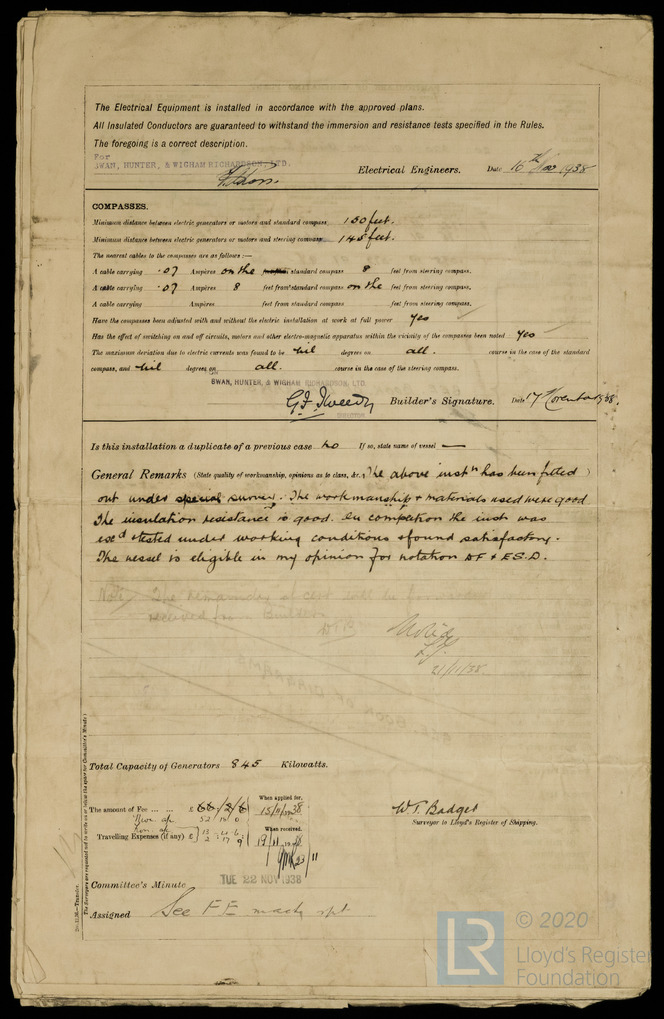 The Electrical Equipment is installed in accordance with the approved plans.
All Insulated Conductors are guaranteed to withstand the immersion and resistance tests specified in the Rules.
The foregoing is a correct description.
For
SWAN, HUNTER, & WIGHAM RICHARDSON, LTD.
Electrical Engineers. Date 16th Nov 1938
COMPASSES.
Minimum distance between electric generators or motors and standard compass 150 feet.
Minimum distance between electric generators or motors and steering compass 145 feet.
The nearest cables to the compasses are as follows:—
A cable carrying .07 Ampères on the standard compass 8 feet from steering compass.
A cable carrying .07 Ampères 8 feet from standard compass on the feet from steering compass.
A cable carrying Ampères feet from standard compass feet from steering compass.
Have the compasses been adjusted with and without the electric installation at work at full power Yes
Has the effect of switching on and off circuits, motors and other electro-magnetic apparatus within the vicinity of the compasses been noted Yes
The maximum deviation due to electric currents was found to be Nil degrees on all. course in the case of the standard
compass, and Nil degrees on all. course in the case of the steering compass.
SWAN, HUNTER, & WIGHAM RICHARDSON, LTD.
G.F. Tweedy Builder's Signature. Date 17 November 1938.
DIRECTOR
Is this installation a duplicate of a previous case No If so, state name of vessel —
General Remarks (State quality of workmanship, opinions as to class, &c.) The above instn has been fitted
out under special survey. The workmanship & materials used were good
The insulation resistance is good. On completion the inst was
exd & tested under working conditions & found satisfactory.
The vessel is eligible in my opinion for notation DF & ESD.
Note, The remainder of cert will be forwarded
received from Builders
Noted
21/11/38
Total Capacity of Generators 845 Kilowatts.
The amount of Fee ... ... £ 66/2/6 When applied for, 15/11/1938
52 10 0
Travelling Expenses (if any) £ 13 12 6 When received, 19/11/1938
2 17 9
23/11
W.T. Badger
Surveyor to Lloyd's Register of Shipping.
Committee's Minute TUE 22 NOV 1938
Assigned See F.E. machy rpt
2m.11.36.—Transfer.
The Surveyors are requested not to write on or below the space for Committee's Minute.
© 2020
LR
Lloyd's Register
Foundation